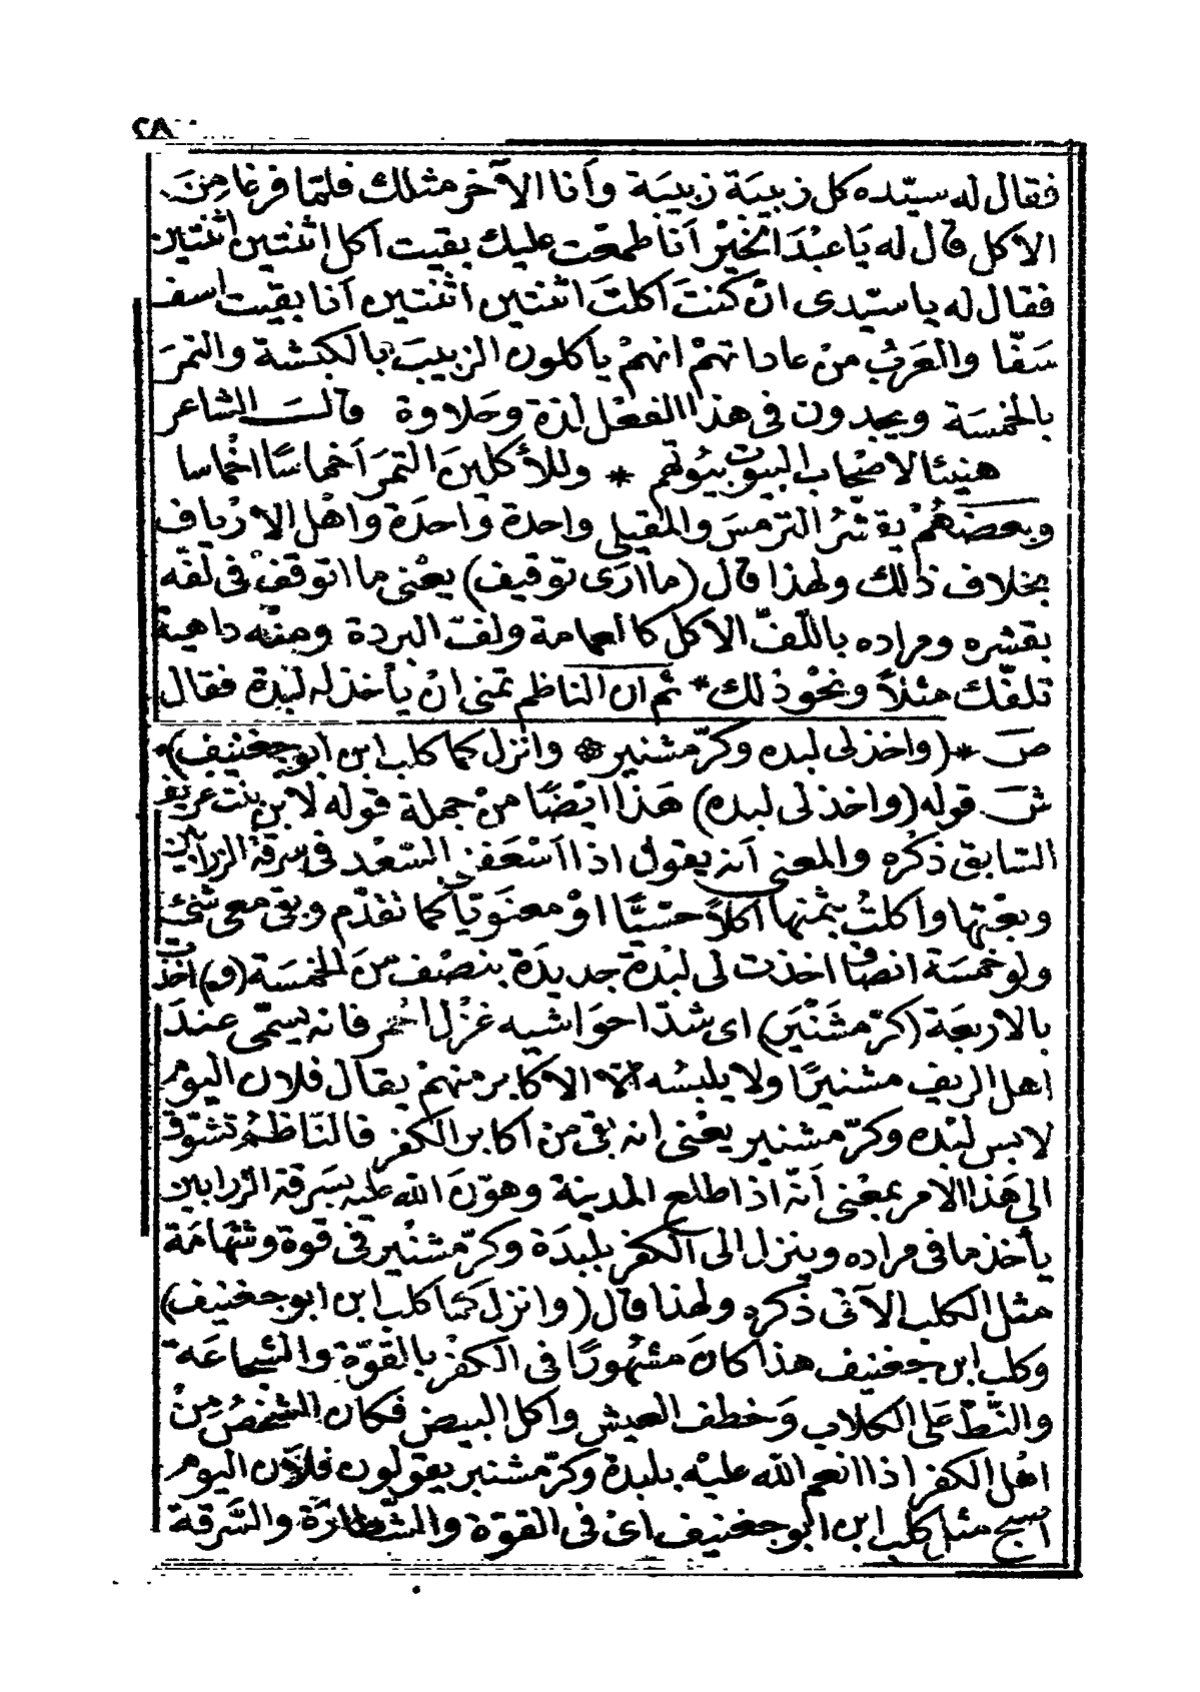 ٢٨
فقال له سيّده كل زبيبَة زبيبَة وأنا الآخر مثلك فلمّا فرغا مِنَ
الاكل قال له يَا عبْدَ الخيْر أنا طمعْت عليك بقيت آكل اثنتين اثنتين
فقال له يا سيّدى انْ كنتَ أكلتَ اثنتين اثنتين أنا بقيت اسف
سَفّا والعَربُ منْ عاداتهمْ انهمْ يأكلون الزبيبَ بالكبشة والتمرَ
بالخمْسَة ويجدون فى هذا الفعْل لذة وحَلاوة قالت الشاعر
هنيئا لاصْحاب البيوت بيُوتهم * وللآكلين التمرَ أخماسًا اخماسا
وبعضهُمْ يقشرُ الترمسَ والمقيلى واحدة واحدَة واهْل الارْياف
بخلاف ذلك ولهذا قال (ما ارَى توقيف) يعْنى ما اتوقفْ فى لفّه
بقشره ومراده باللّفّ الاكل كالعمامة ولفت البردة ومنْه داهية
تلفّك مثلاً ونحْو ذلك * ثم ان الناظم تمنى انْ يأخذ له لبْدة فقال
صَ * (واخذ لى لبده وكرّ مشنير * وانزل كما كلب ابن ابو جغنيف)
شَ قوله (واخذ لى لبده) هَذا ايْضًا منْ جملة قوله لابن بنت عريف
السّابق ذكْره والمعنى أنه يقول اذا أسْعَفنى السّعْد فى سرقة الزرابين
وبعْتها واكلتُ بثمنها أكلاً حسّيًّا اوْ معنَويّا كما تقدّم وبقى معى شئ
ولو خمْسَة انصاف اخذت لى لبْدة جديدَة بنصْف منَ الخمسَة (و) اخذت
بالاربعَة (كرّ مشَنْيَر) اى شدّا حوَاشيه غزْل احْمر فانه يسمّى عندَ
اهل الريف مشنيرًا ولا يلبسُه الا الاكابر منهمْ يقال فلان اليوم
لابس لبْده وكرّ مشنير يعْنى انه بقى من اكابر الكفر فالنّاظمُ تشوّق
الى هَذا الامر بمعْنى أنّه اذا طلع المدينة وهوّنَ الله عليْه بسَرقة الزرابين
يأخذ ما فى مراده وينزل الى الكفر بلبدَة وكرّ مشنْير فى قوة وشهَامَة
مثل الكلب الآتى ذكره ولهذا قال (وانزل كما كلب ابن ابو جغنيف)
وكلب ابن جغنيف هذا كانَ مشهُورًا فى الكفْر بالقوّة والشجاعَة
والنّطّ على الكلاب وَخطف العيش واكل البيض فكان الشخصُ منْ
اهْل الكفر اذا انعم الله عليْه بلبدة وكرّ مشنير يقولون فلان اليوم
اصبح مثل كلب ابن ابو جغنيف اىْ فى القوّة والشّطارَة والسّرقة